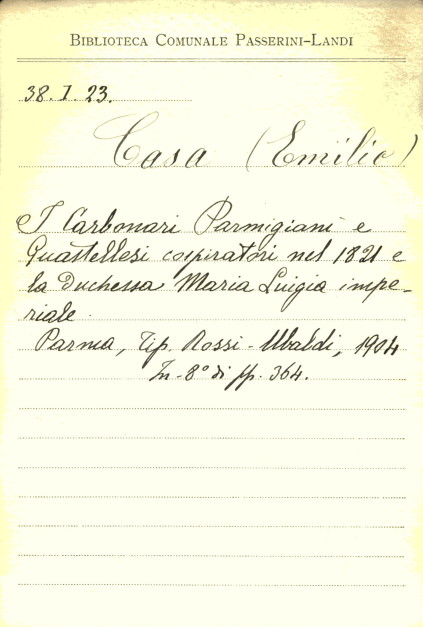 BIBLIOTECA COMUNALE PASSERINI-LANDI
38. I. 23.
Casa (Emilio)
I Carbonari Parmigiani e
Guastellesi cospiratori nel 1821 e
la Duchessa Maria Luigia impe-
riale.
Parma, Tip. Rossi-Ubaldi, 1904
In-8° di pp. 364.